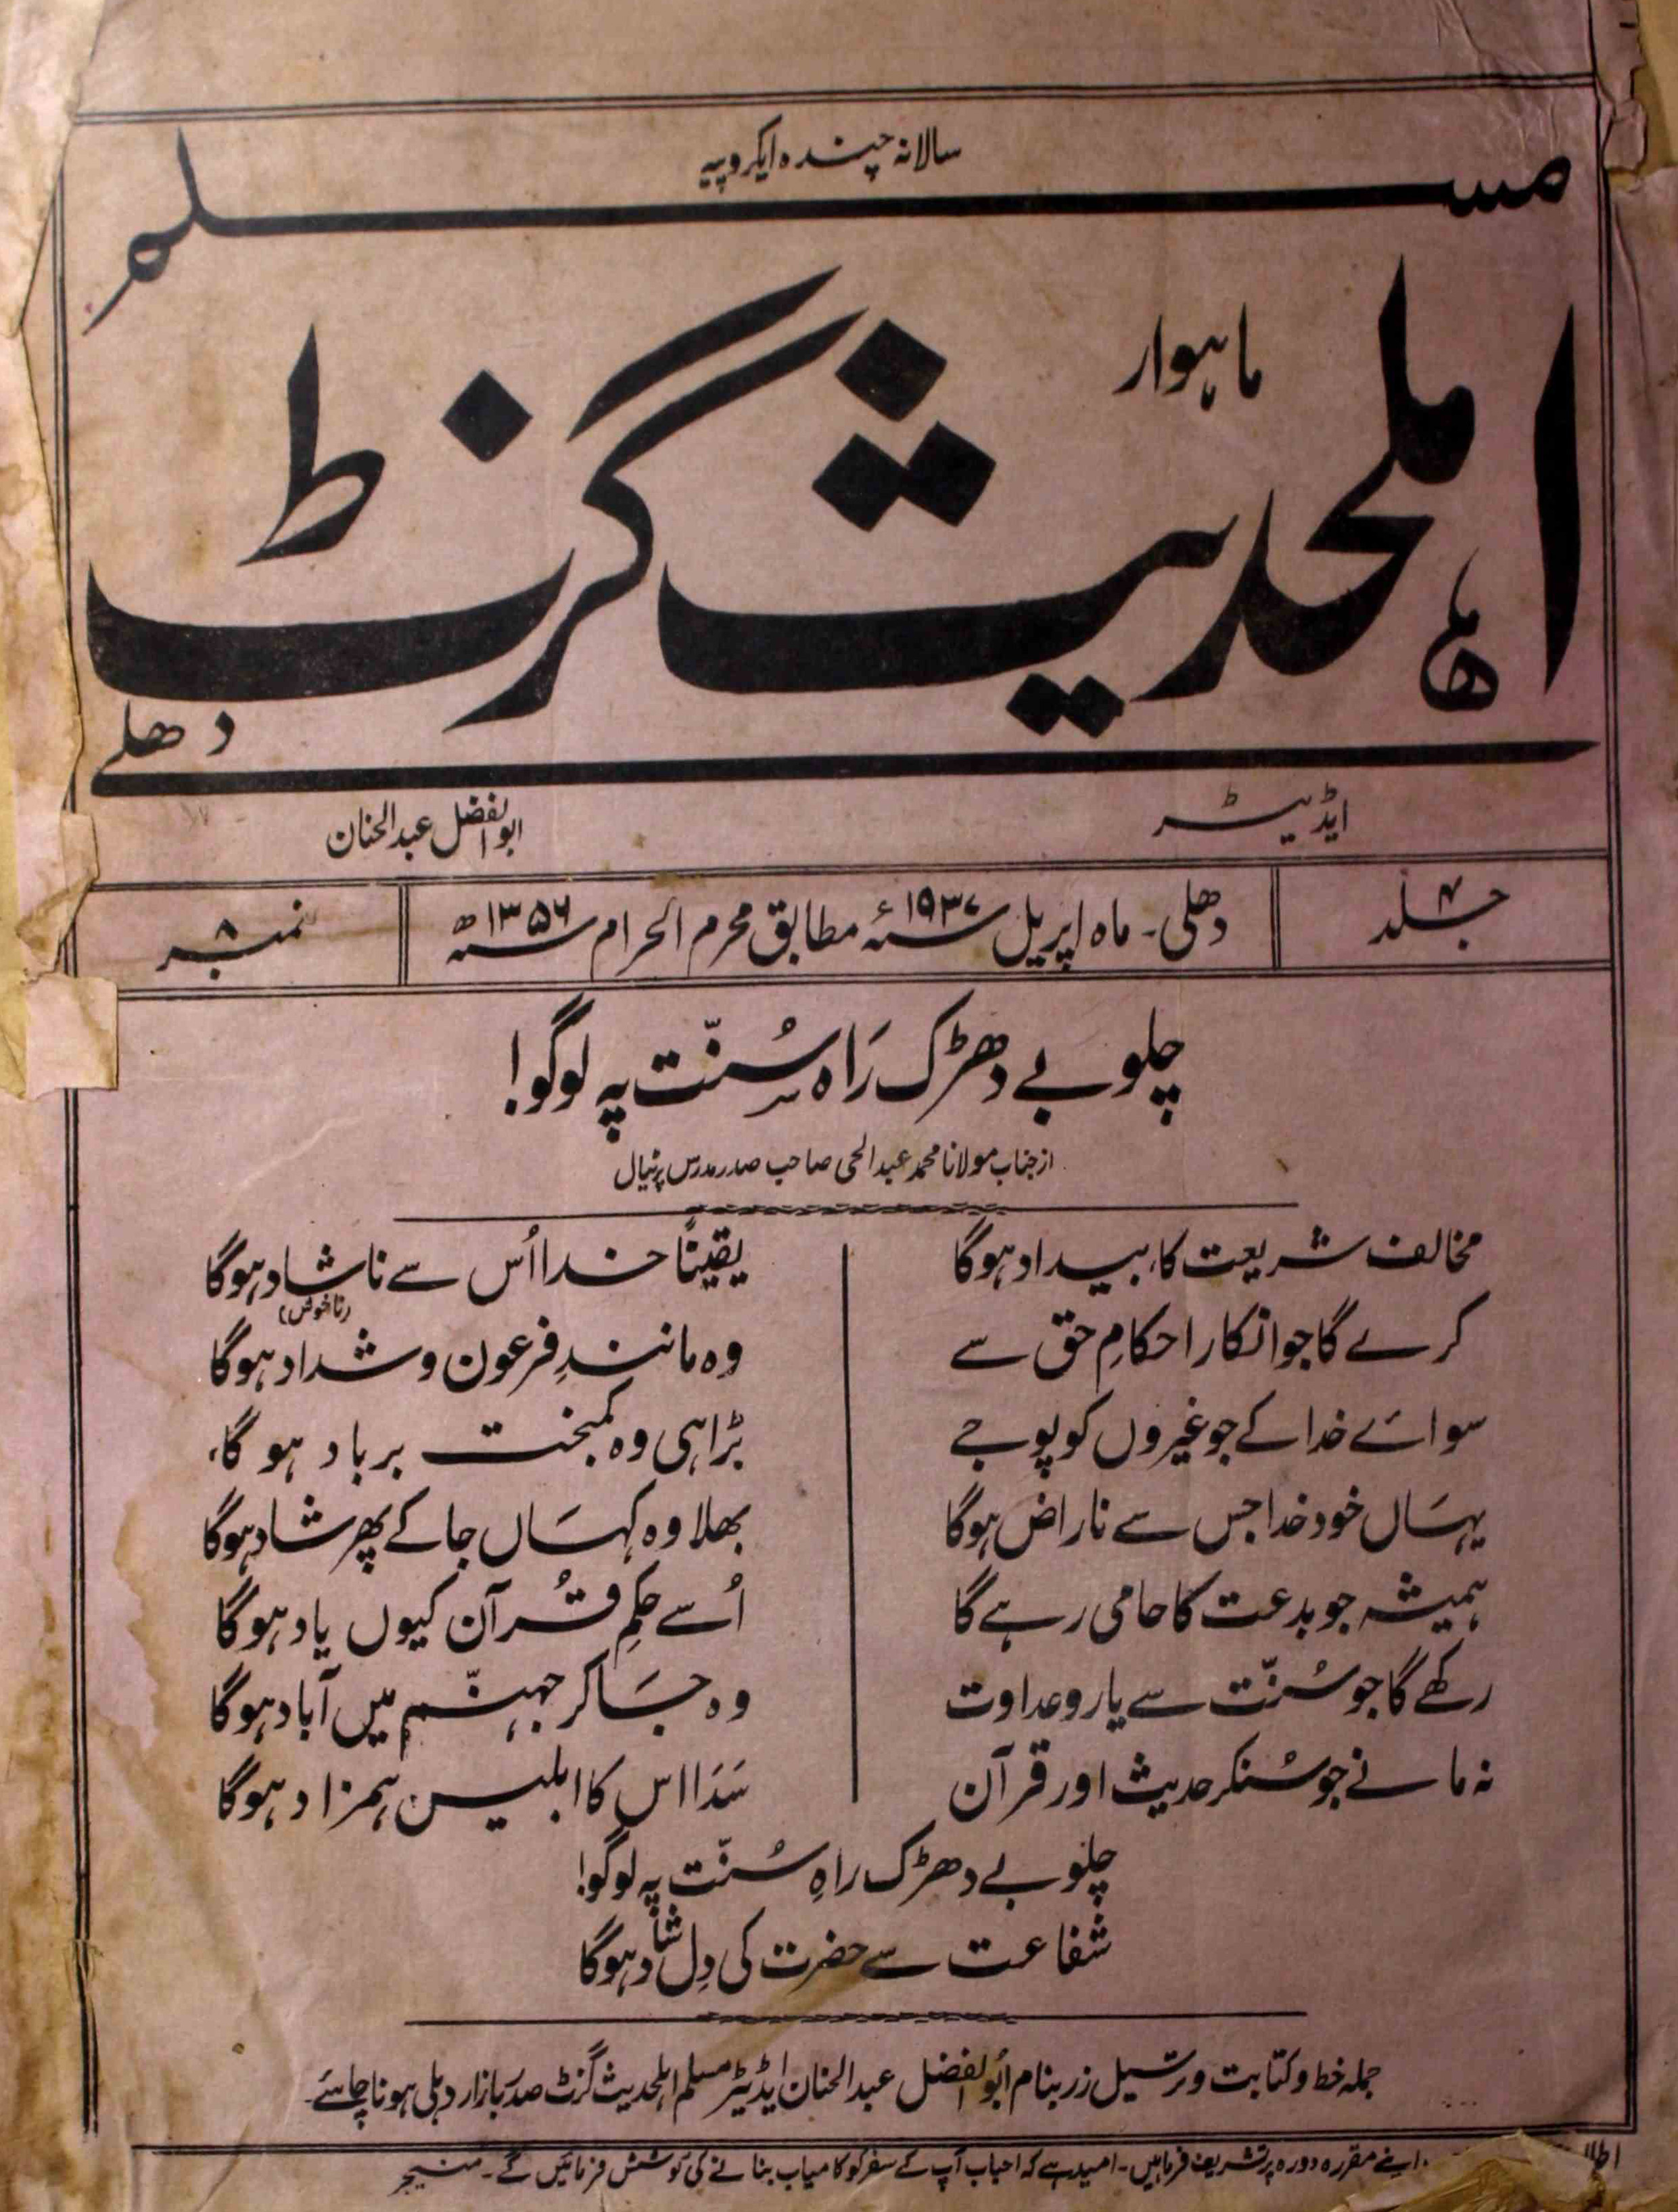 سالانہ چندہ ایکروپیہ
مسلم
ماہوار
اہلحدیث گزٹ
دھلے
ایڈیٹر
ابوالفضل عبدالحنان
جلد ۴
دھلی۔ ماہ اپریل سنہ ۱۹۳۷ء مطابق محرم الحرام سنہ ۱۳۵۶ھ
نمبر ۸
چلو بے دھڑک رَاہ سُنّت پہ لوگو!
از جناب مولانا محمد عبدالحی صاحب صدر مدرس
مخالف شریعت کا، بیداد ہوگا
یقیناً خدا اُس سے ناشاد ہوگا
(ناخوش)
کرے گا جو انکار احکامِ حق سے
وہ مانندِ فرعون و شداد ہوگا
سوائے خدا کے جو غیروں کو پوجے
بڑا ہی وہ کمبخت برباد ہو گا،
یہَاں خود خدا جس سے ناراض ہوگا
بھلا وہ کہَاں جا کے پھر شاد ہوگا
ہمیشہ جو بدعت کا حامی رہے گا
اُسے حکمِ قُرآن کیوں یاد ہوگا
رکھے گا جو سُنّت سے یارو عداوت
وہ جَا کر جہنّم میں آباد ہوگا
نہ مانے جو سُنکر حدیث اور قرآن
سَدَا اس کا ابلیس ہمزاد ہوگا
چلو بے دھڑک راہِ سُنّت پہ لوگو!
شفاعت سے حضرت کی دِل شاد ہوگا
جملہ خط و کتابت و ترسیل زر بنام ابُوالفضل عبدالحنان ایڈیٹر مسلم اہلحدیث گزٹ صدر بازار دہلی ہونا چاہئے۔
اپنے مقررہ دورہ پر تشریف فرما ہیں۔ امید ہے کہ احباب آپ کے سفر کو کامیاب بنانے کی کوشش فرمائیں گے۔ منیجر